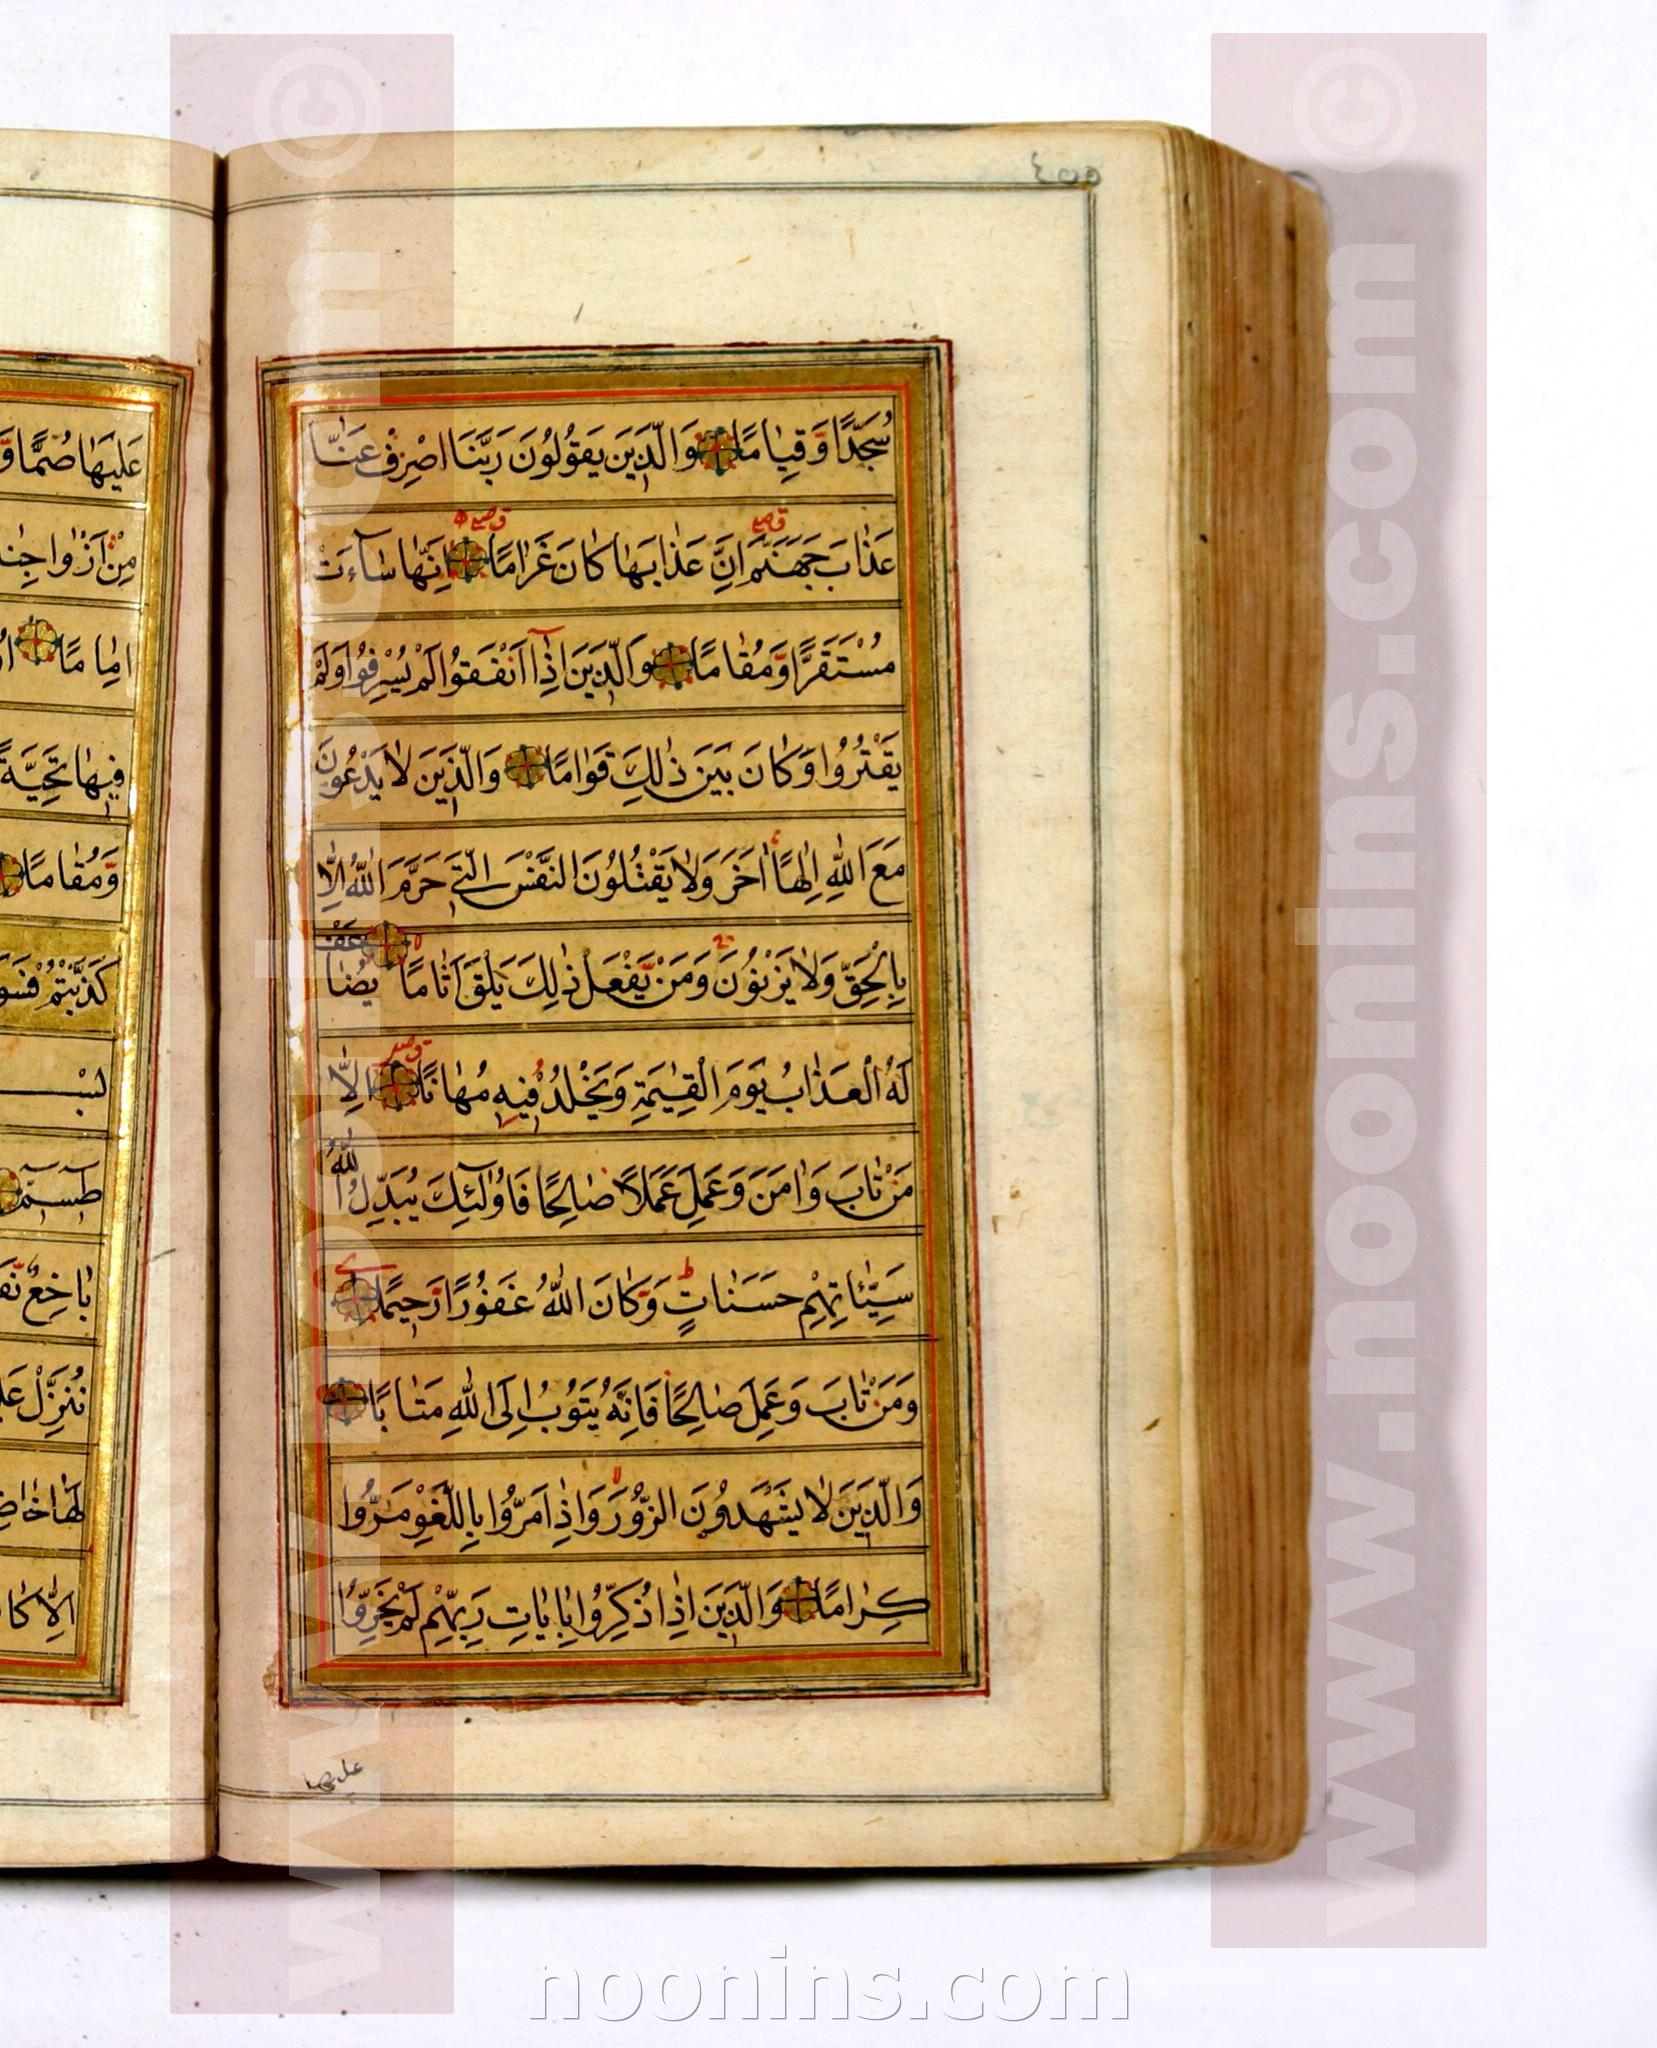 ٤٥٥
سُجَّدًا وَّقِيٰامًا وَالَّذِيْنَ يَقُوْلُوْنَ رَبَّنَا اصْرِفْ عَنّٰا
عَذٰابَ جَهَنَّمَ اِنَّ عَذٰابَهٰا كٰانَ غَرٰامًا اِنَّهٰا سٰآءَتْ
مُسْتَقَرًّا وَّمُقٰامًا وَالَّذِيْنَ اِذٰا اَنْفَقُوْا لَمْ يُسْرِفُوْا وَلَمْ
يَقْتُرُوْا وَكٰانَ بَيْنَ ذٰلِكَ قَوٰامًا وَالَّذِيْنَ لٰا يَدْعُوْنَ
مَعَ اللّٰهِ اِلٰهًا اٰخَرَ وَلٰا يَقْتُلُوْنَ النَّفْسَ الَّتِيْ حَرَّمَ اللّٰهُ اِلّٰا
بِالْحَقِّ وَلٰا يَزْنُوْنَ وَمَنْ يَّفْعَلْ ذٰلِكَ يَلْقَ اَثٰامًا يُضٰاعَفْ
لَهُ الْعَذٰابُ يَوْمَ الْقِيٰمَةِ وَيَخْلُدْ فِيْهِ مُهٰانًا اِلّٰا
مَنْ تٰابَ وَاٰمَنَ وَعَمِلَ عَمَلًا صٰالِحًا فَاُولٰٓئِكَ يُبَدِّلُ اللّٰهُ
سَيِّئٰاتِهِمْ حَسَنٰاتٍ وَّكٰانَ اللّٰهُ غَفُوْرًا رَّحِيْمًا
وَمَنْ تٰابَ وَعَمِلَ صٰالِحًا فَاِنَّهُ يَتُوْبُ اِلَى اللّٰهِ مَتٰابًا
وَالَّذِيْنَ لٰا يَشْهَدُوْنَ الزُّوْرَ وَاِذٰا مَرُّوْا بِاللَّغْوِ مَرُّوْا
كِرٰامًا وَالَّذِيْنَ اِذٰا ذُكِّرُوْا بِاٰيٰاتِ رَبِّهِمْ لَمْ يَخِرُّوْا
عليها
عَلَيْهٰا صُمًّا وَّ
مِنْ اَزْوٰاجِنٰا
اِمٰامًا
فِيْهٰا تَحِيَّةً
وَّمُقٰامًا
كَذَّبْتُمْ فَسَوْ
بِسْـ
طٰسٓمٓ
بٰاخِعٌ نَفْ
نُنَزِّلْ عَلَ
لَهٰا خٰاضِ
اِلّٰا كٰا
www.noonins.com ©
www.noonins.com ©
noonins.com